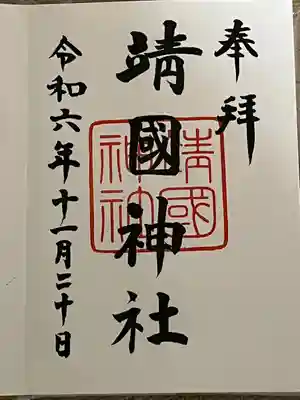 奉拝
靖國神社
靖國
神社
令和六年十一月二十日